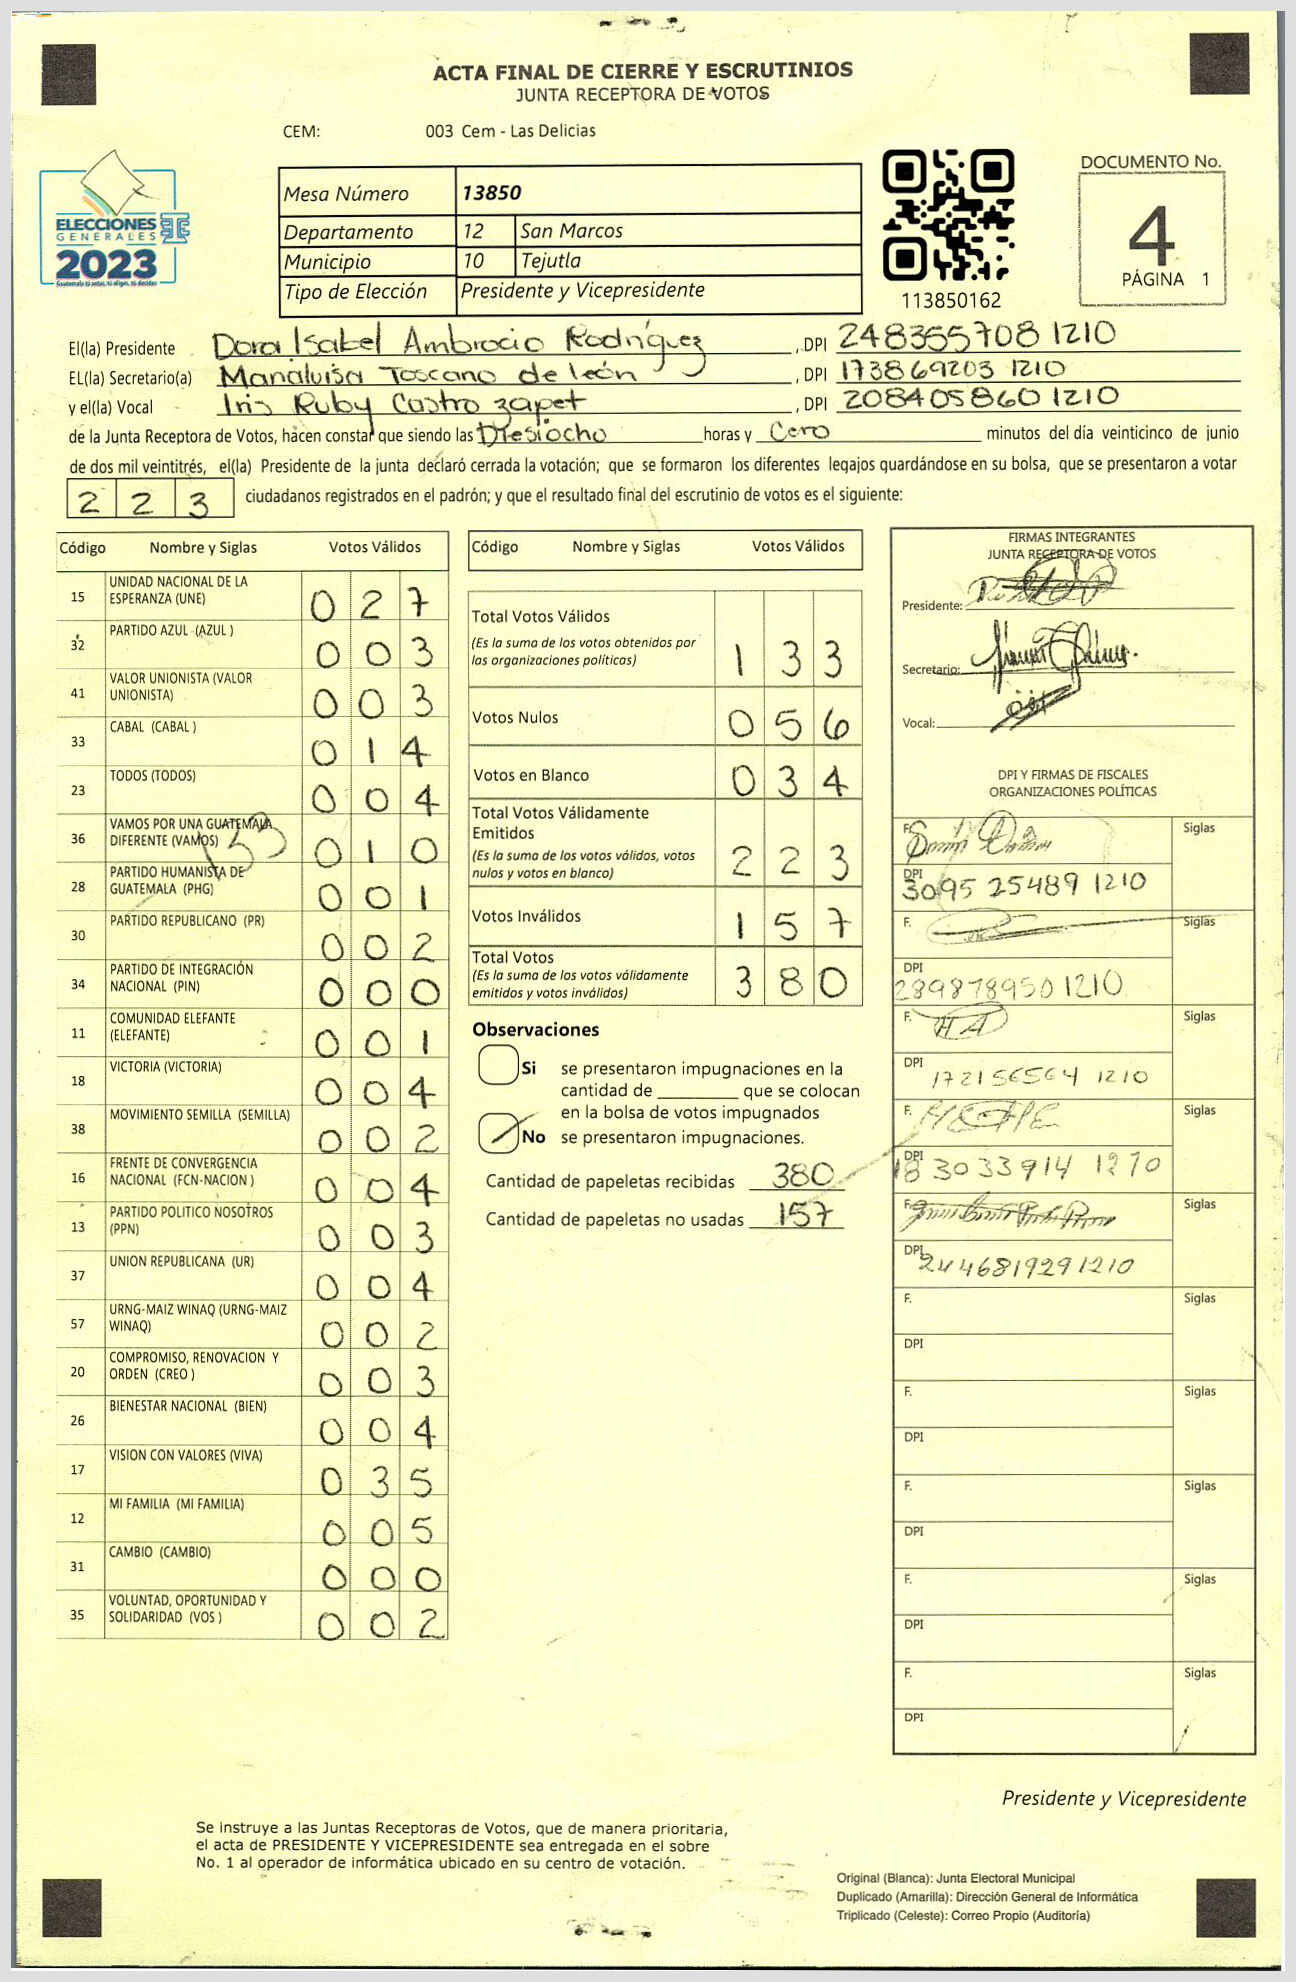 ACTA FINAL DE CIERRE Y ESCRUTINIOS
JUNTA RECEPTORA DE VOTOS
CEM: 003 Cem - Las Delicias
ELECCIONES
GENERALES
2023
Mesa Número 13850
Departamento 12 San Marcos
Municipio 10 Tejutla
Tipo de Elección Presidente y Vicepresidente
113850162
DOCUMENTO No.
4
PÁGINA 1
El(la) Presidente Dora Isabel Ambrocio Rodríguez, DPI 248355708 1210
EL(la) Secretario(a) Marialuisa Toscano de león, DPI 173869203 1210
y el(la) Vocal Iris Ruby Castro zapet, DPI 208405860 1210
de la Junta Receptora de Votos, hacen constar que siendo las Diesiocho horas y Cero minutos del día veinticinco de junio
de dos mil veintitrés, el(la) Presidente de la junta declaró cerrada la votación; que se formaron los diferentes legajos guardándose en su bolsa, que se presentaron a votar
2 2 3 ciudadanos registrados en el padrón; y que el resultado final del escrutinio de votos es el siguiente:
Código Nombre y Siglas Votos Válidos
15 UNIDAD NACIONAL DE LA ESPERANZA (UNE) 0 2 7
32 PARTIDO AZUL (AZUL ) 0 0 3
41 VALOR UNIONISTA (VALOR UNIONISTA) 0 0 3
33 CABAL (CABAL ) 0 1 4
23 TODOS (TODOS) 0 0 4
36 VAMOS POR UNA GUATEMALA DIFERENTE (VAMOS) 0 1 0
133
28 PARTIDO HUMANISTA DE GUATEMALA (PHG) 0 0 1
30 PARTIDO REPUBLICANO (PR) 0 0 2
34 PARTIDO DE INTEGRACIÓN NACIONAL (PIN) 0 0 0
11 COMUNIDAD ELEFANTE (ELEFANTE) 0 0 1
18 VICTORIA (VICTORIA) 0 0 4
38 MOVIMIENTO SEMILLA (SEMILLA) 0 0 2
16 FRENTE DE CONVERGENCIA NACIONAL (FCN-NACION ) 0 0 4
13 PARTIDO POLITICO NOSOTROS (PPN) 0 0 3
37 UNION REPUBLICANA (UR) 0 0 4
57 URNG-MAIZ WINAQ (URNG-MAIZ WINAQ) 0 0 2
20 COMPROMISO, RENOVACION Y ORDEN (CREO ) 0 0 3
26 BIENESTAR NACIONAL (BIEN) 0 0 4
17 VISION CON VALORES (VIVA) 0 3 5
12 MI FAMILIA (MI FAMILIA) 0 0 5
31 CAMBIO (CAMBIO) 0 0 0
35 VOLUNTAD, OPORTUNIDAD Y SOLIDARIDAD (VOS ) 0 0 2
Código Nombre y Siglas Votos Válidos
Total Votos Válidos
(Es la suma de los votos obtenidos por las organizaciones políticas) 1 3 3
Votos Nulos 0 5 6
Votos en Blanco 0 3 4
Total Votos Válidamente Emitidos
(Es la suma de los votos válidos, votos nulos y votos en blanco) 2 2 3
Votos Inválidos 1 5 7
Total Votos
(Es la suma de los votos válidamente emitidos y votos inválidos) 3 8 0
Observaciones
Si se presentaron impugnaciones en la
cantidad de ________ que se colocan
en la bolsa de votos impugnados
No se presentaron impugnaciones.
Cantidad de papeletas recibidas 380
Cantidad de papeletas no usadas 157
FIRMAS INTEGRANTES
JUNTA RECEPTORA DE VOTOS
Presidente:
Secretario:
Vocal:
DPI Y FIRMAS DE FISCALES
ORGANIZACIONES POLÍTICAS
F. Siglas
DPI 3095 25489 1210
F. Siglas
DPI 289878950 1210
F. Siglas
DPI 172156564 1210
F. Siglas
DPI 183033914 1210
F. Siglas
DPI 244681929 1210
F. Siglas
DPI
F. Siglas
DPI
F. Siglas
DPI
F. Siglas
DPI
F. Siglas
DPI
Presidente y Vicepresidente
Se instruye a las Juntas Receptoras de Votos, que de manera prioritaria,
el acta de PRESIDENTE Y VICEPRESIDENTE sea entregada en el sobre
No. 1 al operador de informática ubicado en su centro de votación.
Original (Blanca): Junta Electoral Municipal
Duplicado (Amarilla): Dirección General de Informática
Triplicado (Celeste): Correo Propio (Auditoría)